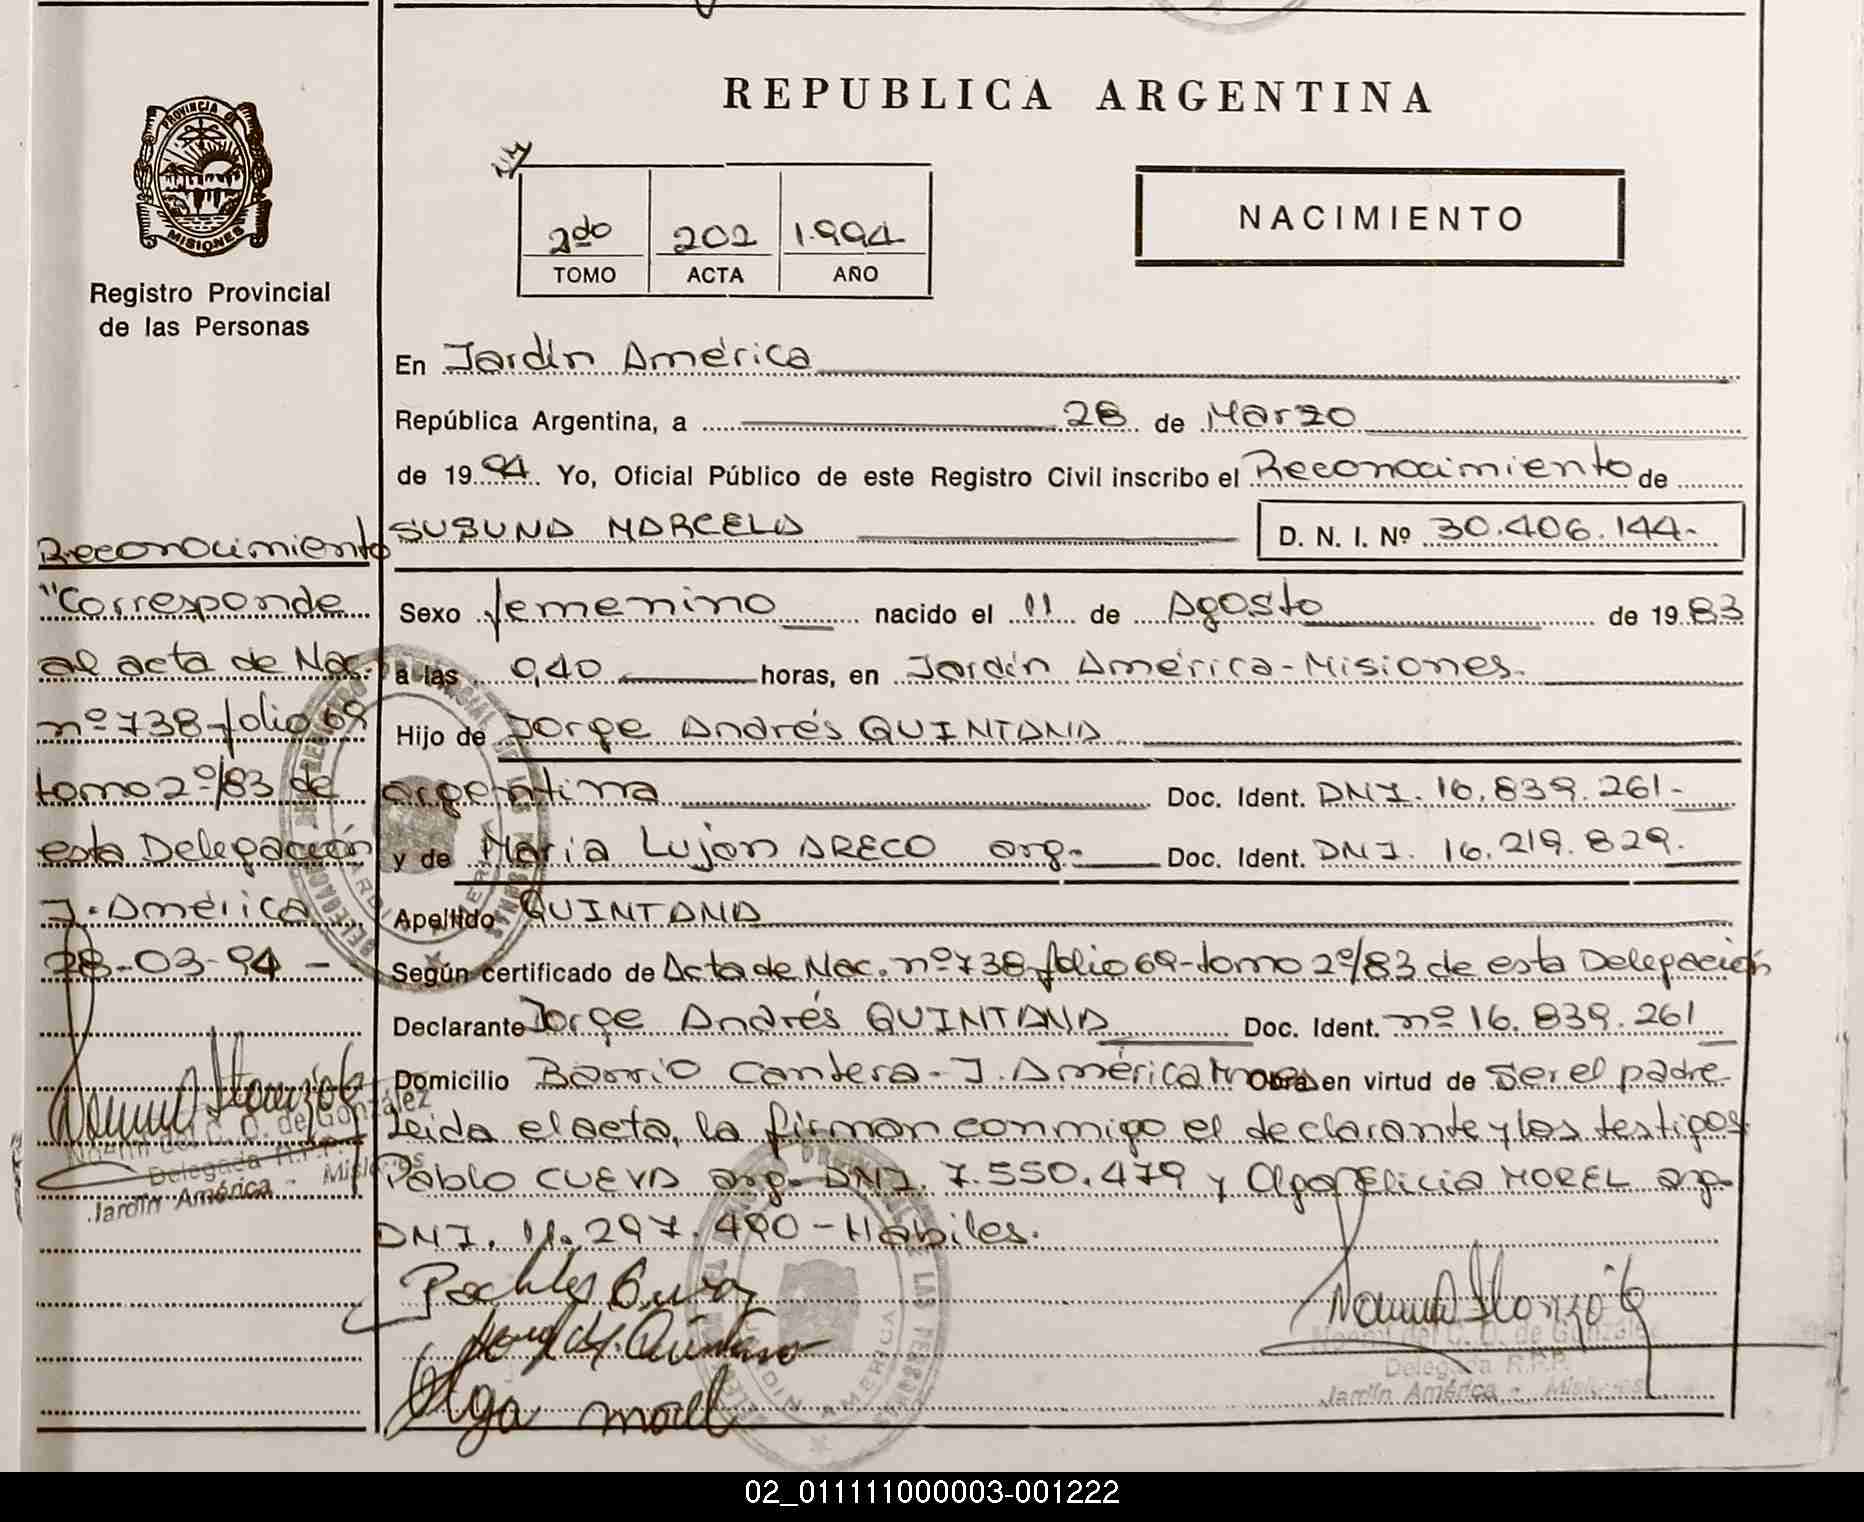 REPUBLICA ARGENTINA
PROVINCIA DE
MISIONES
Registro Provincial
de las Personas
2do 202 1.994
TOMO ACTA AÑO
NACIMIENTO
En Jardín América
República Argentina, a 28 de Marzo
de 1994 Yo, Oficial Público de este Registro Civil inscribo el Reconocimiento de
SUSUNA MARCELA D. N. I. Nº 30.406.144.-
Sexo femenino nacido el 11 de Agosto de 1983
a las 0,40 horas, en Jardín América - Misiones.
Hijo de Jorge Andrés QUINTANA
argentina Doc. Ident. DNI. 16.839.261-
y de Maria Lujan ARECO arg.- Doc. Ident. DNI. 16.219.829.
Apellido QUINTANA
Según certificado de Acta de Nac. nº 738 folio 69-tomo 2º/83 de esta Delegación
Declarante Jorge Andrés QUINTANA Doc. Ident. nº 16.839.261
Domicilio Barrio Cantera - J. América Mnes Obra en virtud de ser el padre
Leida el acta, la firman conmigo el declarante y los testigos
Pablo CUEVA arg.- DNI. 7.550.479 y Olga Felicia MOREL arg.
DNI. 11.297.490 - Habiles.
Olga morel
Noemí del C. O. de González
Delegada R.P.P.
Jardín América - Misiones
Reconocimiento
"Corresponde
al acta de Nac.
nº 738 folio 69
tomo 2º/83 de
esta Delegación
J. América
28-03-94 -
Noemí del C. O. de González
Delegada R.P.P.
Jardín América - Misiones
02_011111000003-001222